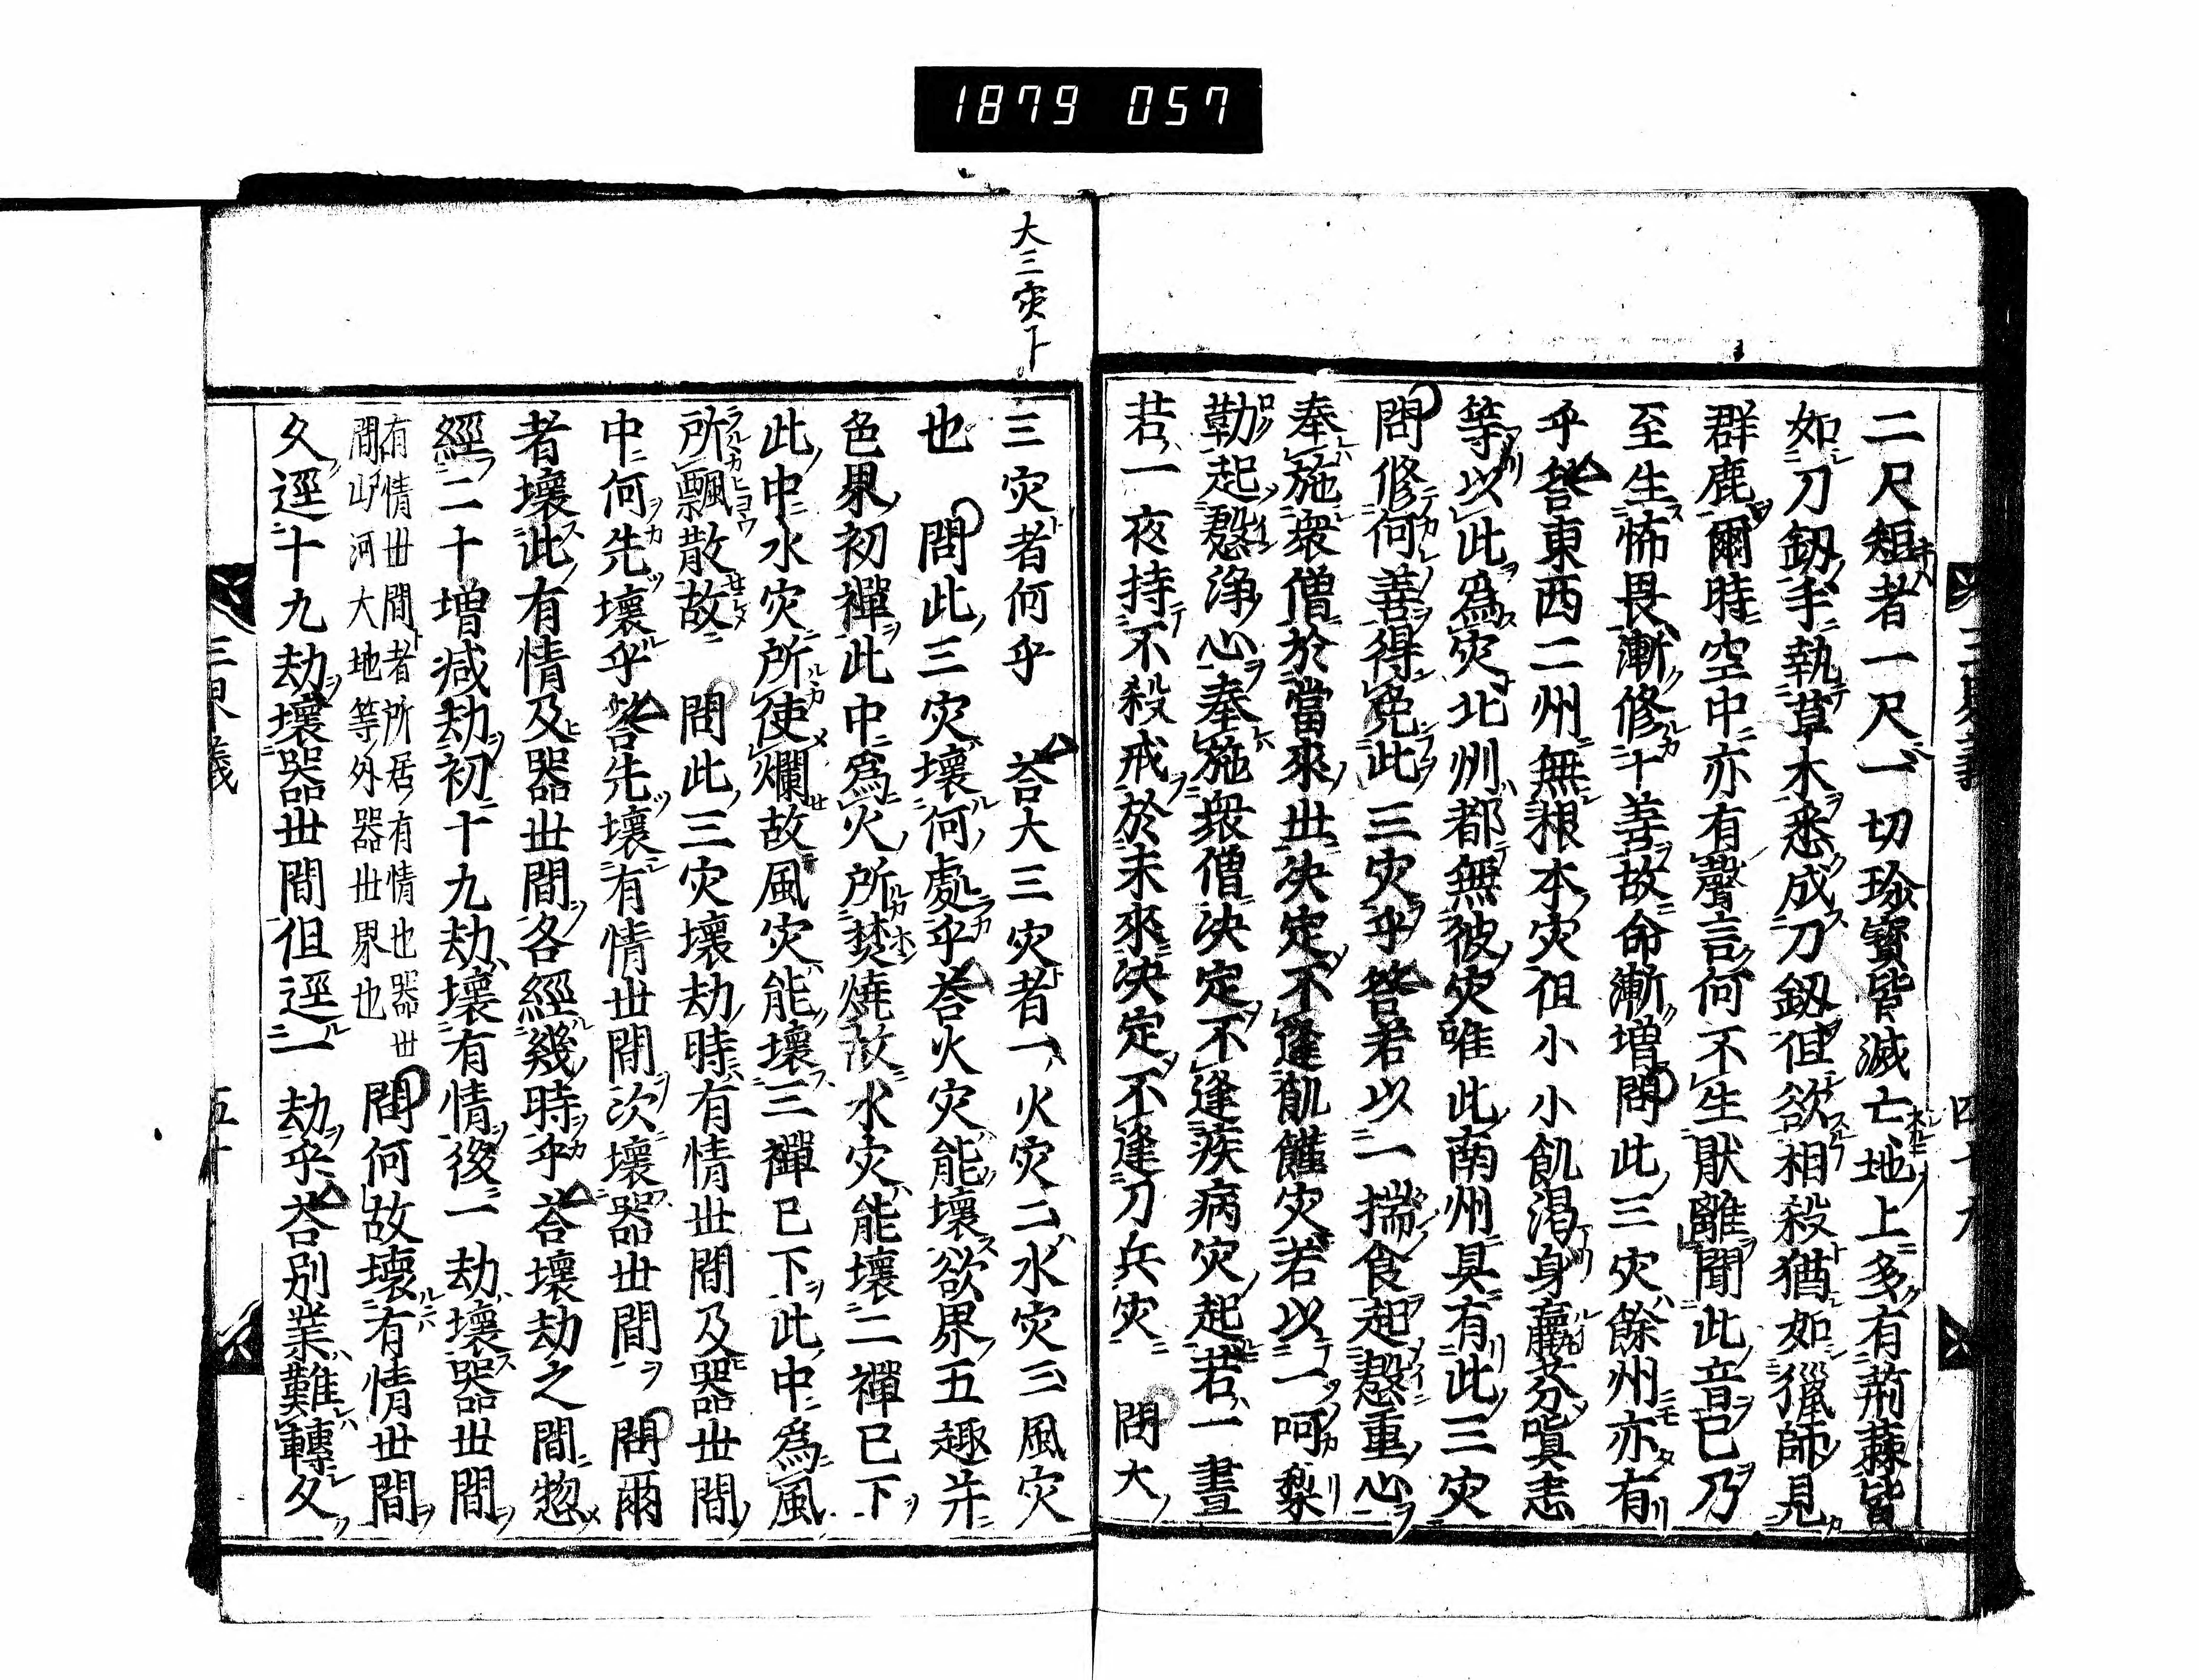 1879 057
二尺短者一尺一切珎寳皆滅亡地上多有荊蕀皆
如刀釼手執草木悉成刀釼但欲相殺猶如獵師見
群鹿爾時空中亦有聲言何不生猒離聞此音已乃
至生怖畏漸修十善故命漸増問此三灾餘州亦有
乎答東西二州無根本灾但小小飢渇身羸芬嗔恚
等以此爲灾北州都無彼灾唯此南州具有此三灾
問修何善得免此三灾乎答若以一揣食起慇重心
奉施衆僧於當來世决定不逢飢饉灾若以一呵梨
勒起慇浄心奉施衆僧决定不逢疾病灾起若一晝
若一夜持不殺戒於未來决定不逢刀兵灾 問大
大三灾下
三灾者何乎 荅大三灾者一火灾二水灾三風灾
也 問此三灾壞何處乎荅火灾能壞欲界五趣并
色界初禪此中爲火所焚燒故水灾能壞二禪已下
此中水灾所使爛故風灾能壞三禪已下此中爲風
所飄散故 問此三灾壞劫時有情世間及器世間
中何先壞乎答先壞有情世間次壞器世間 問爾
者壞此有情及器世間各經幾時乎荅壞劫之間惣
經二十増减劫初十九劫壞有情後一劫壞器世間
有情世間者所居有情也器世
間山河大地等外器世界也
問何故壞有情世間
久逕十九劫壞器世間但逕一劫乎荅別業難轉久